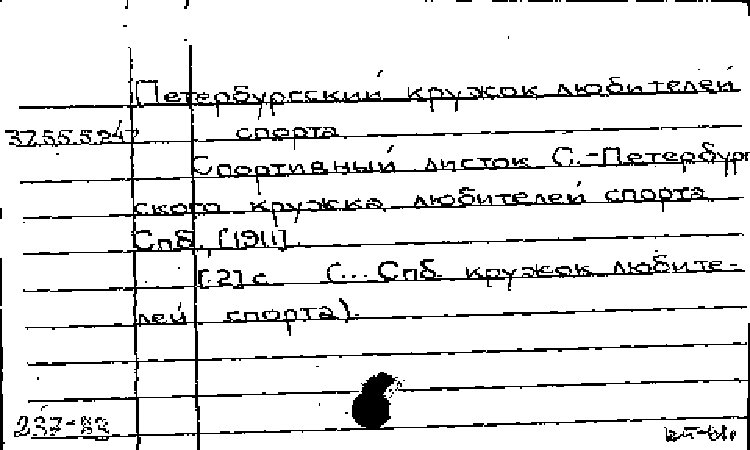 Петербургский кружок любителей
спорта
Спортивный листок С.-Петербург
ского кружка любителей спорта
Спб. [1911].
[2] с (... Спб. кружок любите-
лей спорта).
237-83